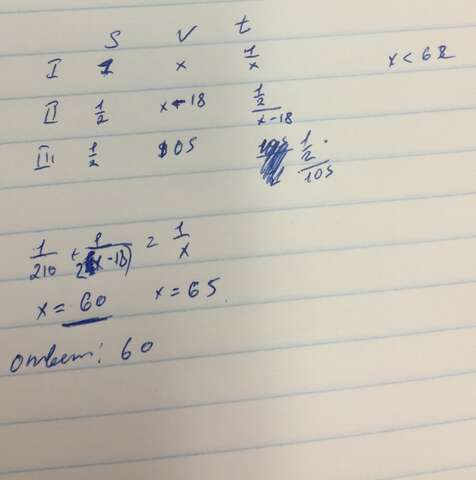 S V t
I 1 x 1/x x < 62
II 1/2 x - 18 1/2/x-18
III 1/2 105 1/2/105
1/210 + 1/2(x-18) = 1/x
x = 60 x = 65.
Ответ: 60